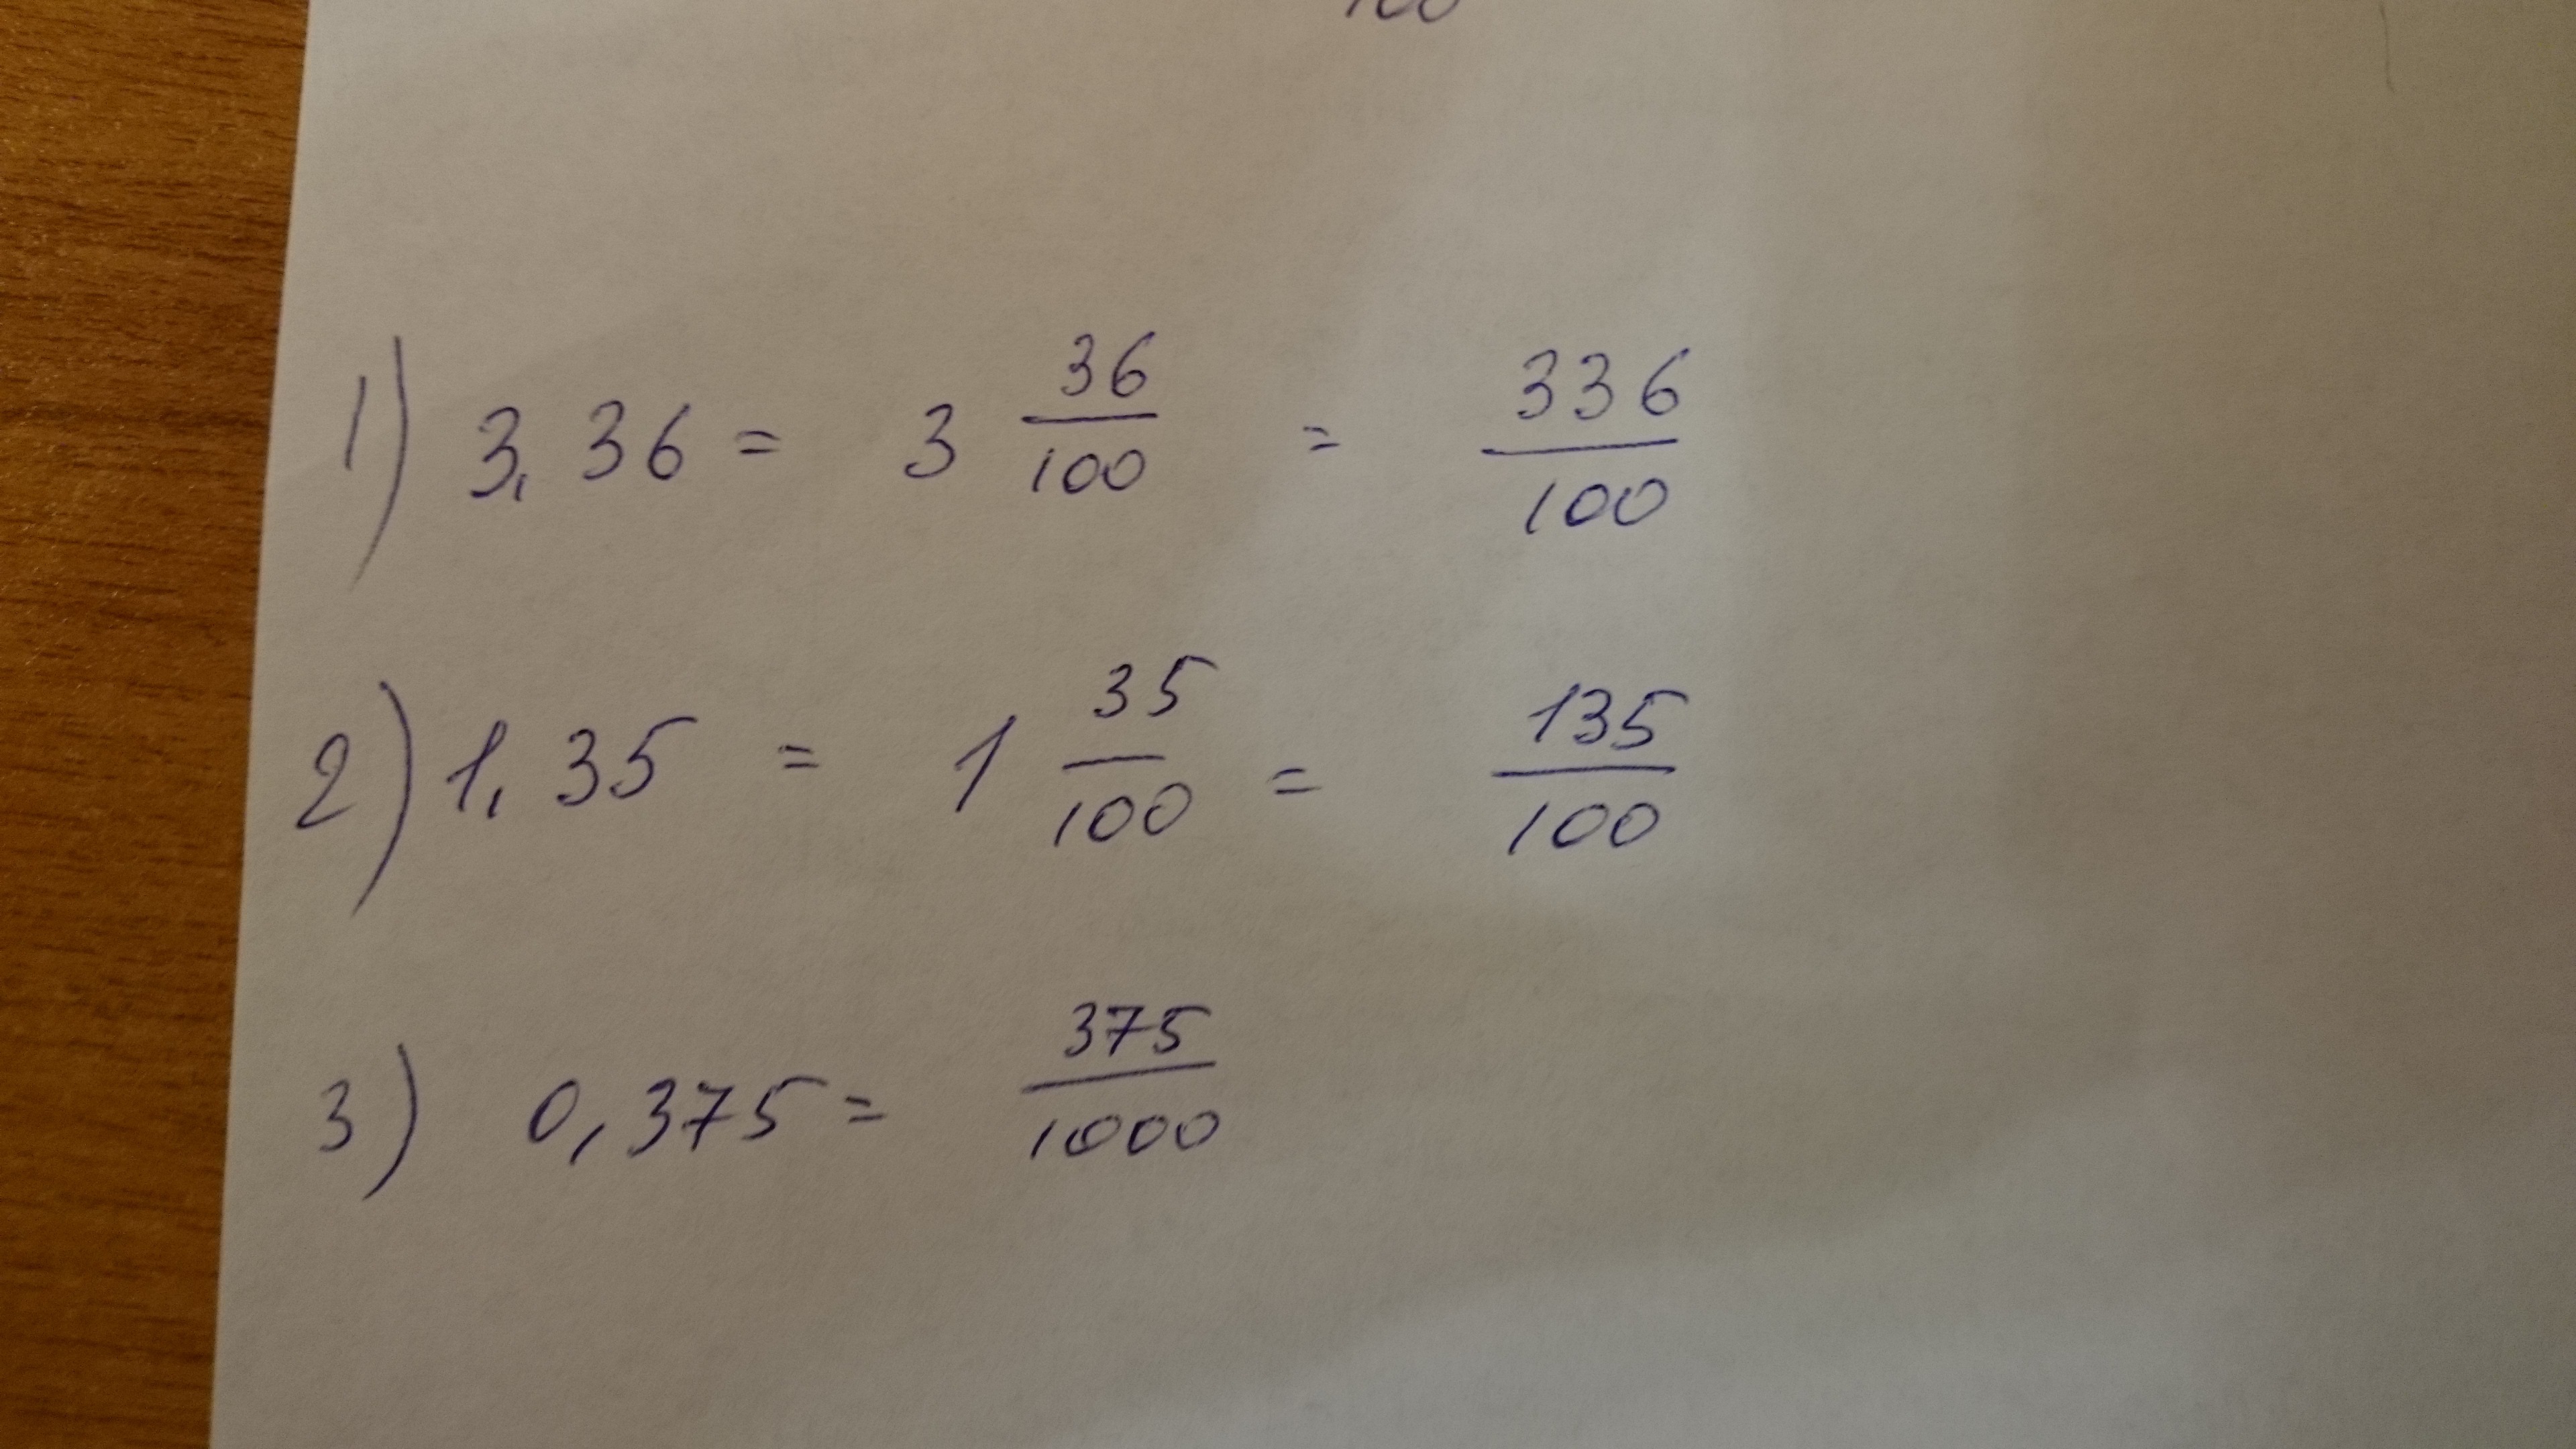 1) 3,36 = 3 36/100 = 336/100
2) 1,35 = 1 35/100 = 135/100
3) 0,375 = 375/1000